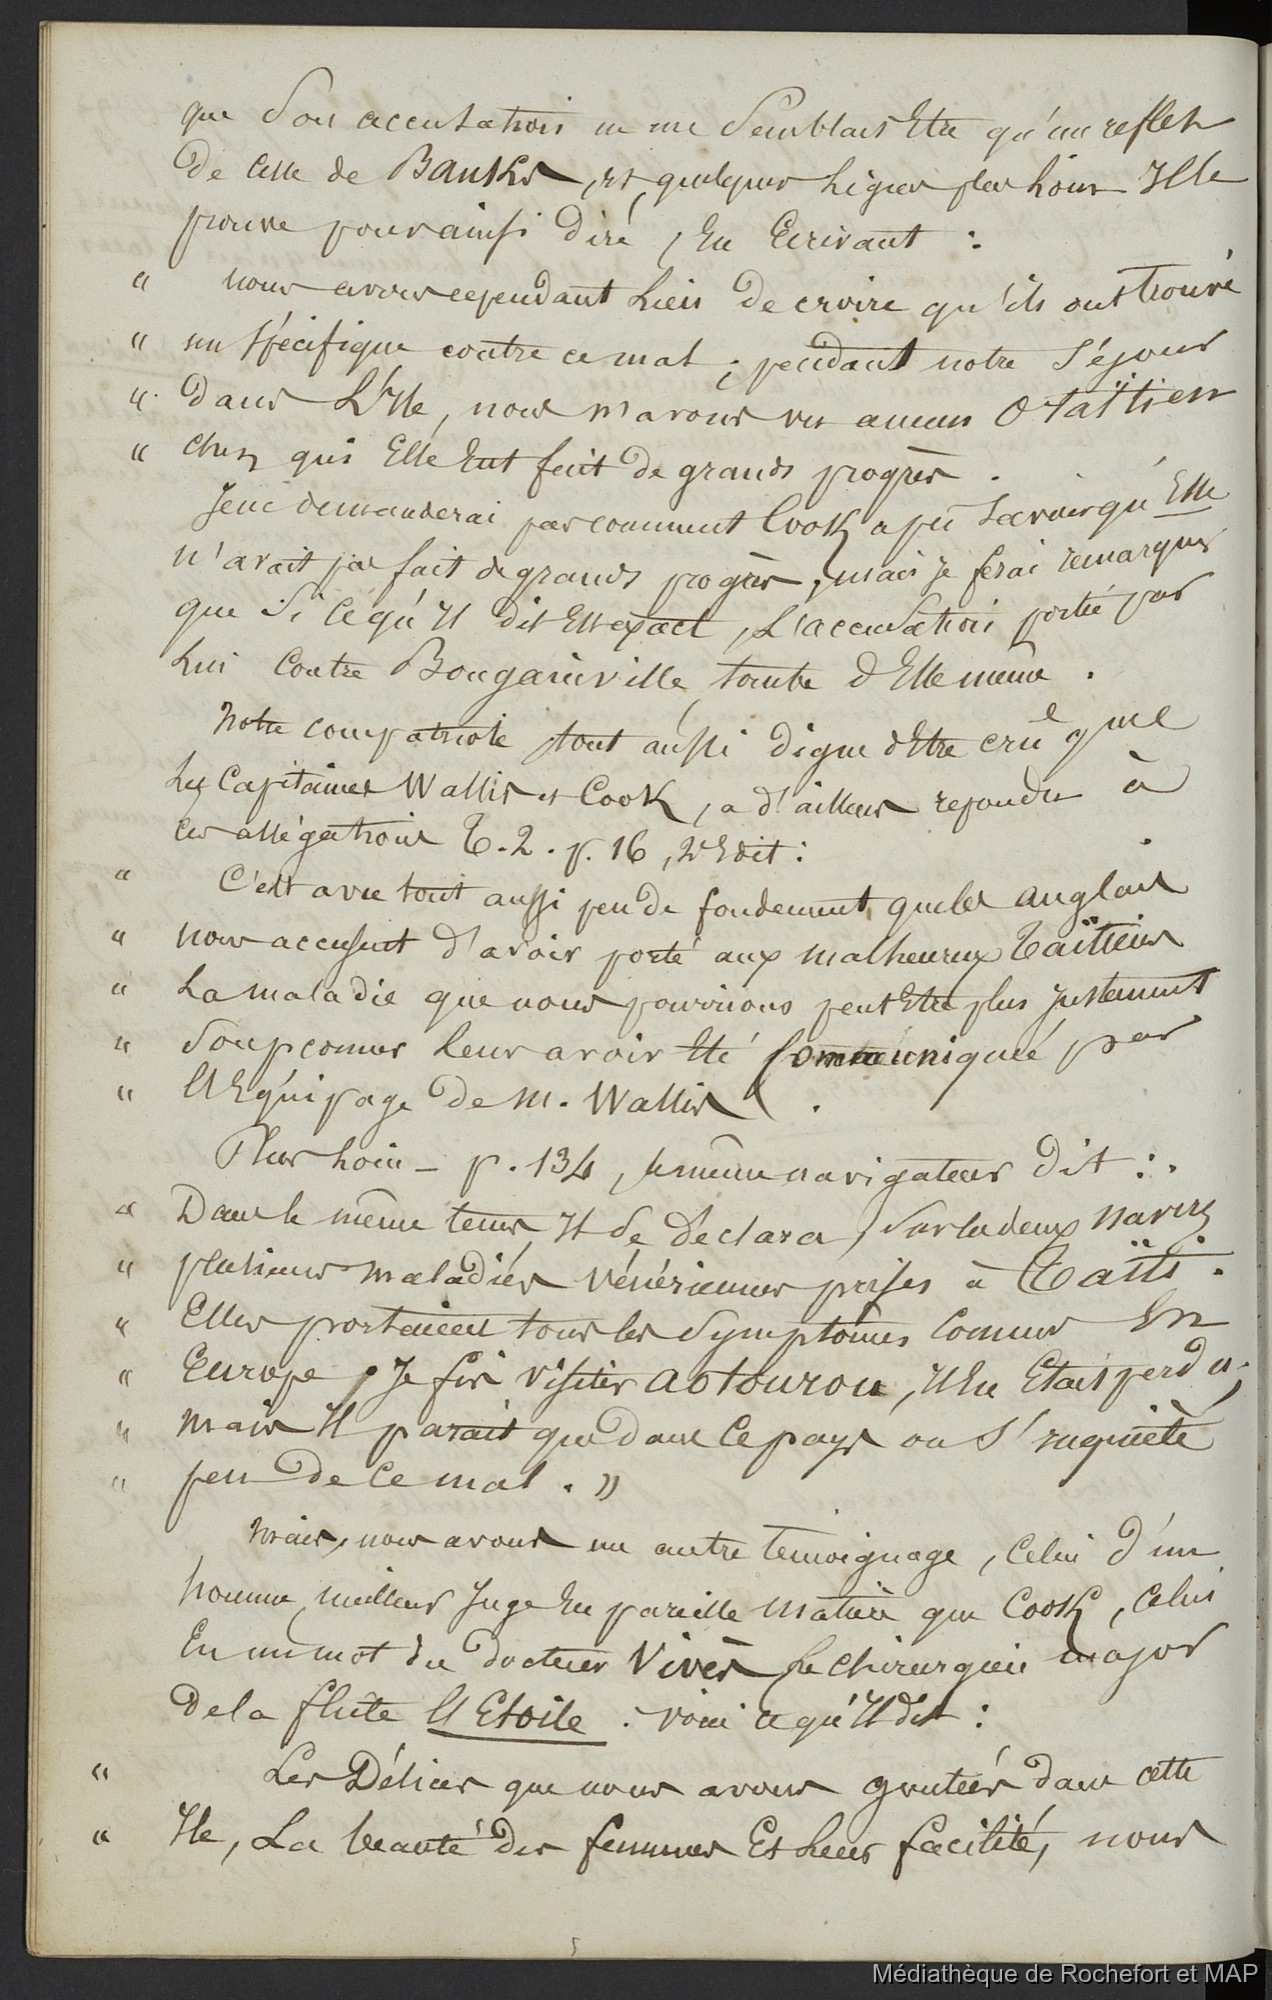 que son accusation ne me semblait être qu'un reflet
de celle de Banks, et quelques lignes plus loin Il le
prouve pour ainsi dire, En Ecrivant :
" nous avons cependant lieu de croire qu'ils ont trouvé
" un spécifique contre ce mal ; pendant notre séjour
" dans L'Ile, nous n'avons vu aucun O taïtien
" chez qui Elle Eut fait de grands progrès .
Je ne demanderai pas comment Cook a pu savoir qu'Elle
n'avait pas fait de grands progrès, mais je ferai remarquer
que si ce qu'Il dit Est exact, L'accusation portée par
lui Contre Bougainville, tombe d'Elle même .
Notre compatriote, tout aussi digne d'Etre cru que
les Capitaines Wallis et Cook, a d'ailleurs repondu à
ces allégations T. 2 . p. 16, dit :
" C'est avec tout aussi peu de fondement que les anglais
" nous accusent d'avoir porté aux malheureux Taïtiens
" La maladie que nous pourrions peut Etre plus justement
" soupçonner leur avoir Eté Communiquée par
" l'Equipage de M. Wallis .
Plus loin – p. 134, le même navigateur dit :
" Dans le même tems Il se déclara, sur les deux navires
" plusieurs maladies Vénériennes prises à Taïti .
" Elles portaient tous les symptômes connus En
" Europe, Je fis visiter Aotourou, Il en Etait perdu ;
" mais Il parait que dans ce pays on s'inquiète
" peu de ce mal . "
Mais, nous avons un autre témoignage, celui d'un
homme meilleur juge En pareille matière que Cook, celui
En un mot du docteur Vivès le chirurgien major
de la flûte l'Etoile . voici ce qu'Il dit :
" Les Délices que nous avons goutées dans cette
" Ile, La beauté des femmes Et leur facilité, nous
Médiathèque de Rochefort et MAP